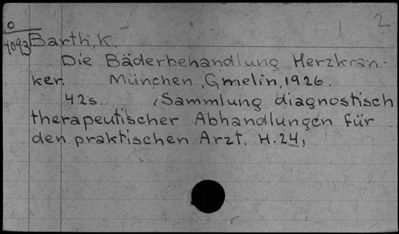 2
O
4093
Barth, K.
Die Bäderbehandlung Herzkran-
ker. München, Gmelin, 1926.
42s. (Sammlung diagnostisch
therapeutischer Abhandlungen für
den praktischen Arzt. H.24)